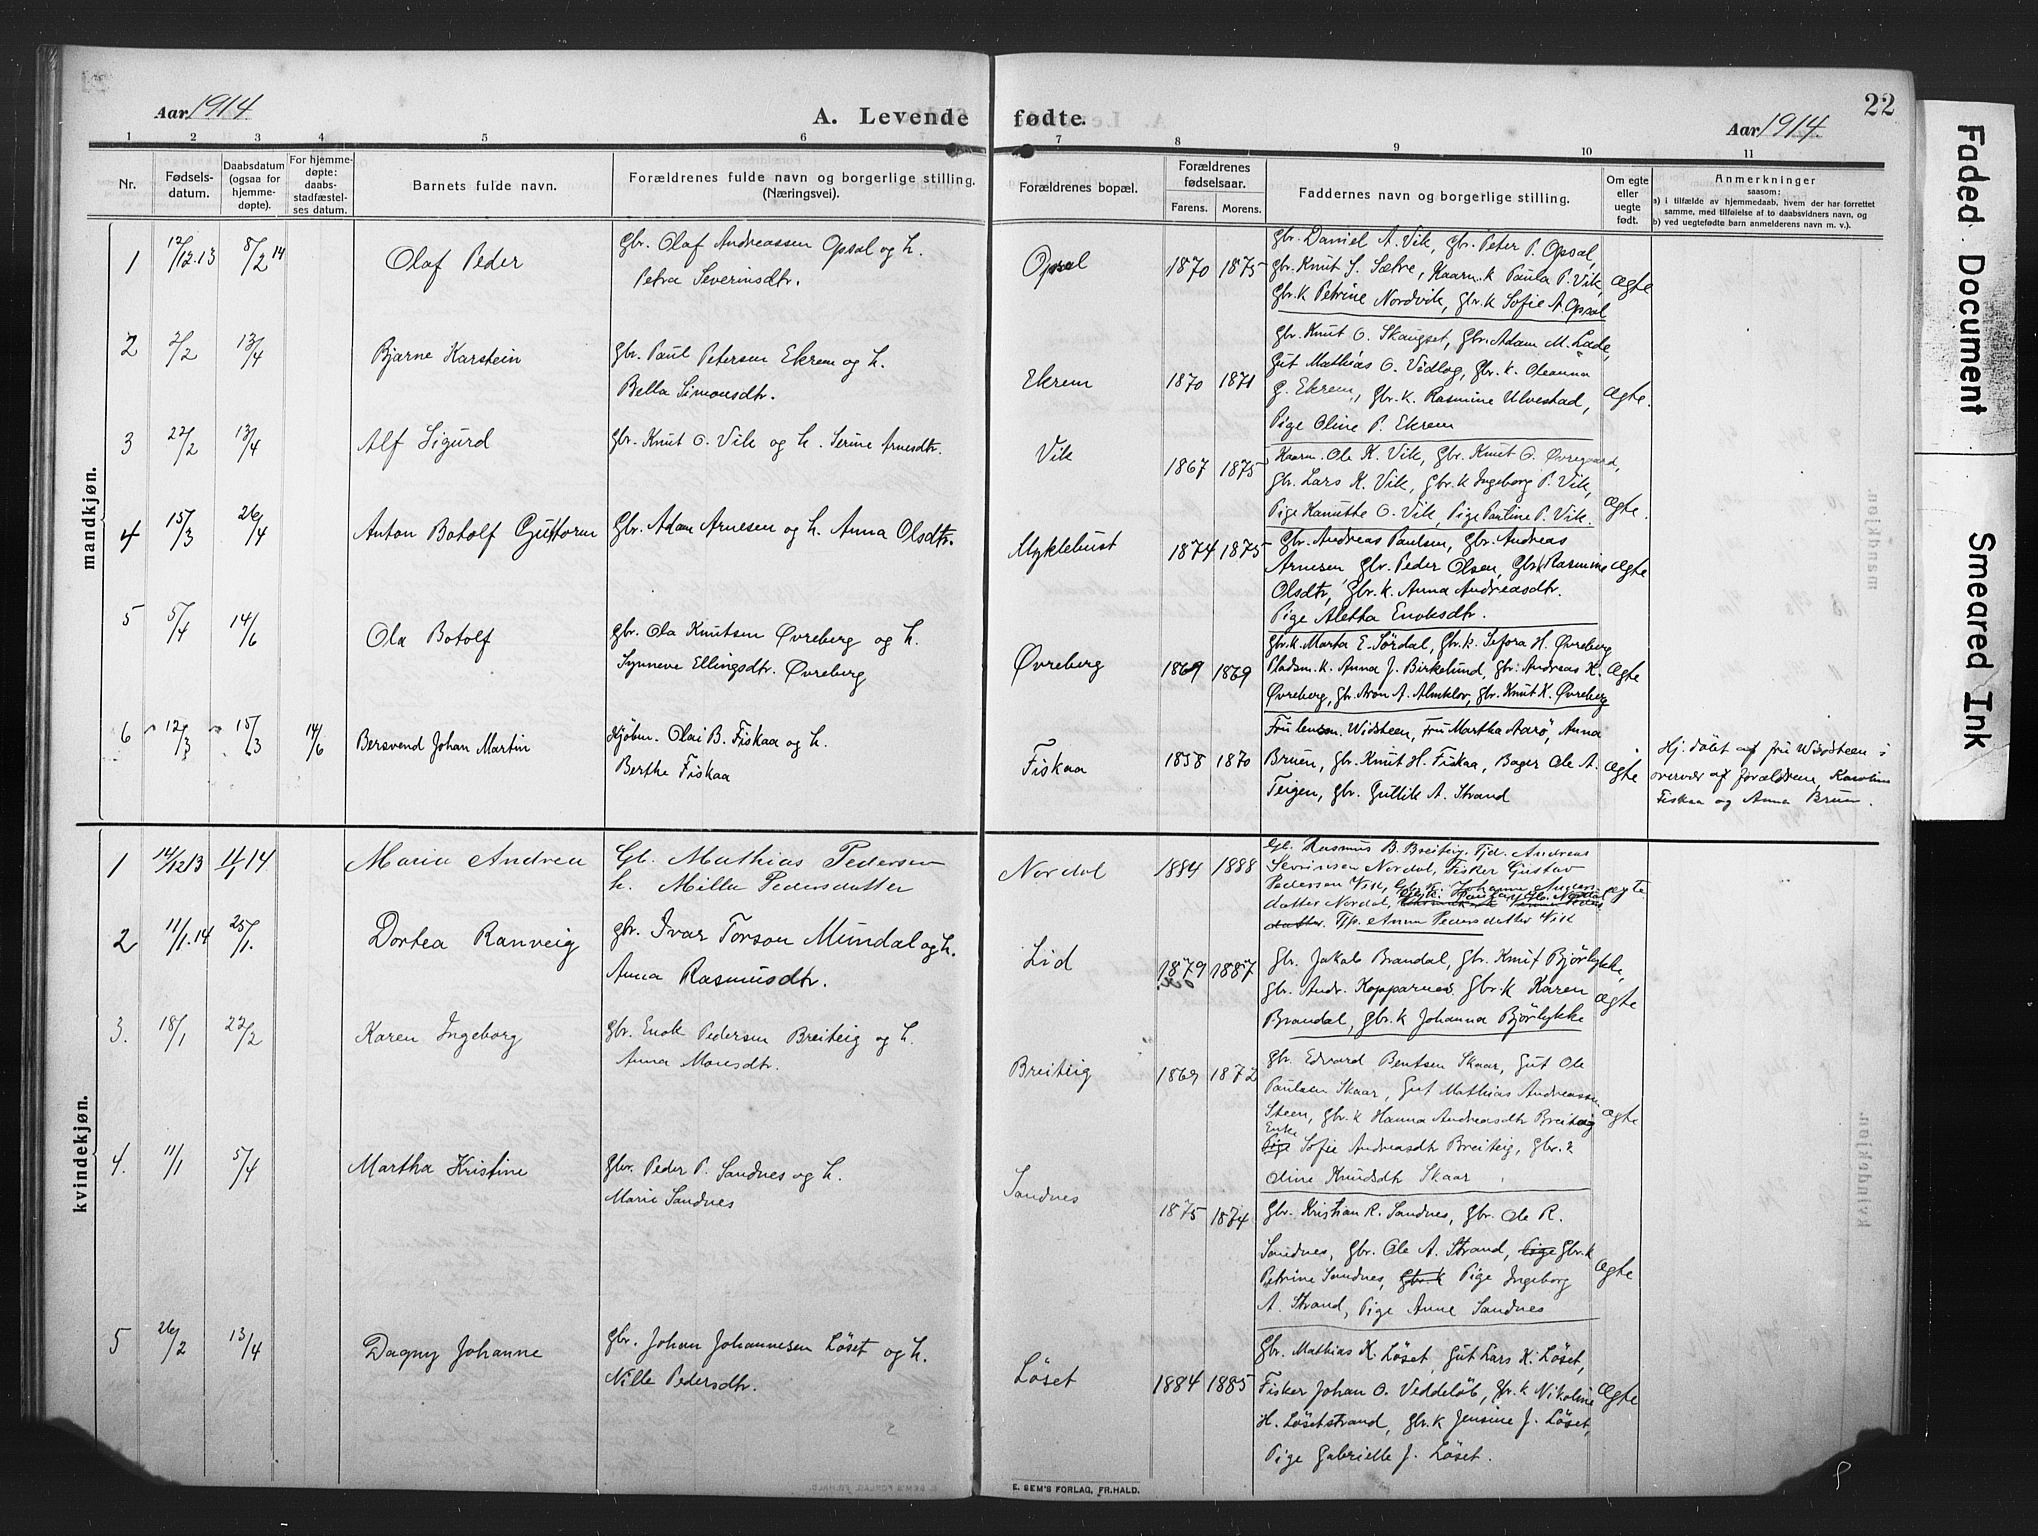 22
Aar 1914
A. Levende fødte.
Aar 1914.
1 2 3 4 5 6 7 8 9 10 11
Nr.
Fødsels-
datum.
Daabsdatum
(ogsaa for
hjemme-
døpte).
For hjemme-
døpte:
daabs-
stadfæstel-
ses datum.
Barnets fulde navn.
Forældrenes fulde navn og borgerlige stilling.
(Næringsvei).
Forældrenes bopæl.
Forældrenes
fødselsaar.
Farens. Morens.
Faddernes navn og borgerlige stilling.
Om egte
eller
uegte
født.
Anmerkninger
saasom:
a) i tilfælde av hjemmedaab, hvem der har forrettet
samme, med tilføielse af to daabsvidners navn, og
b) ved uegtefødte barn anmelderens navn m. v.).
mandkjøn.
1 12/12.13 8/2 14
Olaf Peder
Gbr. Olaf Andreassen Opsal og h.
Petra Severinsdtr.
Opsal
1870 1875
Gbr. Daniel A. Vik, Gbr. Peter P. Opsal,
Gbr. Knut S. Sætre, Kaarm.k Paula P. Vik,
Gbr.k Petrine Nordvik, Gbr.k Sofie A. Opsal
Ægte
2 2/2 13/4
Bjarne Karstein
Gbr. Paul Petersen Ekrem og h.
Bella Simonsdtr.
Ekrem
1870 1871
Gbr. Knut O. Skaugset, Gbr. Adam M. Lade,
Gut Mathias O. Vidlog, Gbr. k. Oleanna
G. Ekrem, Gbr. k. Rasmine Ulvestad,
Pige Oline P. Ekrem
Ægte.
3 22/2 13/4
Alf Sigurd
Gbr. Knut O. Vik og h. Serine Arnesdtr.
Vik
1867 1875
Kaarm. Ole K. Vik, Gbr. Knut O. Øvregaard,
Gbr. Lars K. Vik, Gbr.k Ingeborg P. Vik,
Pige Kanutte O. Vik, Pige Pauline P. Vik.
Ægte.
4 15/3 26/4
Anton Botolf Guttorm
Gbr. Adan Arnesen og h. Anna Olsdtr.
Myklebust
1874 1875
Gbr. Andreas Paulsen, Gbr. Andreas
Arnesen Gbr. Peder Olsen, Gbrk Rasmine
Olsdtr, Gbr.k. Anna Andreasdtr.
Pige Aletta Enoksdtr.
Ægte
5 5/4 14/6
Ola Botolf
Gbr. Ola Knutsen Øvreberg og h.
Synneve Ellingsdtr. Øvreberg
Øvreberg
1869 1869
Gbr.k. Marta E. Sørdal, Gbr. k. Sefora H. Øvreberg
Pladsm.k. Anna J. Birkelund, Gbr. Andreas K.
Øvreberg, Gbr. Aron A. Almklov, Gbr. Knut K. Øvreberg
Ægte
6 12/3 15/3 14/6
Bersvend Johan Martin
Kjøbm. Olai B. Fiskaa og h.
Berthe Fiskaa
Fiskaa
1858 1870
Fru lensm. Widsteen, Fru Martha Aarø, Anna
Bruun, Gbr. Knut H. Fiskaa, Bager Ole A.
Teigen, Gbr. Guttik A. Strand
Ægte
Hj. døbt af fru Widsteen i
overvær af forældrene Karoline
Fiskaa og Anna Bruun.
kvindekjøn.
1 14/12 13 14
Maria Andrea
Gb. Mathias Pedersen
h. Mille Pedersdatter
Nordal
1884 1888
Gb. Rasmus B. Breiteig. Tjd. Andreas
Sevrinsen Nordal, Fisker Gustav
Pedersen Vik, Gbr.k. Johanne Anders
datter Nordal,
datter. Tp. Anna Pedersdatter Vik
Ægte.
2 11/1.14 25/1.
Dortea Ranveig
Gbr. Ivar Torson Mundal og h.
Anna Rasmusdtr.
Lid
1879 1887
Gbr. Jakob Brandal, Gbr. Knut Bjørlykke,
Gbr. Andr. Koparnes Gbr.k Karen
Brandal, Gbr.k Johanna Bjørlykke
Ægte
3. 18/1 22/2
Karen Ingeborg
Gbr. Enok Pedersen Breiteig og h.
Anna Monsdtr.
Breiteig
1869 1872
Gbr. Edvard Bentsen Skaar, Gut Ole
Paulsen Skaar, Gut Mathias Andreassen
Steen, Gbr. k Hanna Andreasdtr Breiteig
Enke
Pige Sofie Andreasdtr Breiteig, Gbr. k
Oline Knudsdtr Skaar
Ægte
4. 11/1 5/4
Martha Kristine
Gbr. Peder P. Sandnes og h.
Marie Sandnes
Sandnes
1875 1874
Gbr. Kristian R. Sandnes, Gbr. Ole R.
Sandnes, Gbr. Ole A. Strand, Pige Gbr.k
Petrine Sandnes, Gbr.k Pige Ingeborg
A. Strand, Pige Anne Sandnes
Ægte
5 26/2 13/4
Dagny Johanne
Gbr. Johan Johannesen Løset og h.
Nille Pedersdtr.
Løset
1884 1885
Gbr. Mathias K. Løset, Gut Lars K. Løset,
Fisker Johan O. Veddeløb, Gbr. k Nikoline
H. Løsetstrand, Gbr. k Jensine J. Løset,
Pige Gabrielle J. Løset.
Ægte
E. SEM'S FORLAG, FR.HALD.
Faded Document
Smeared Ink